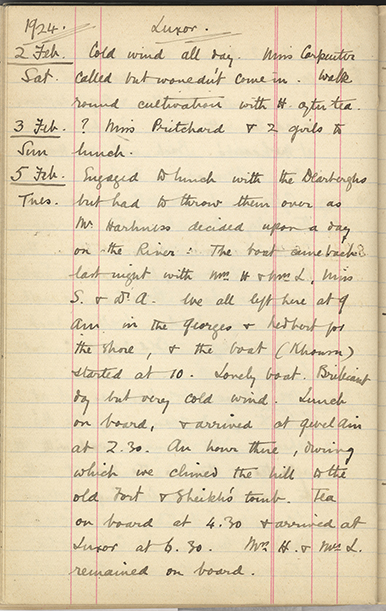 1924. Luxor.
2 Feb. Cold wind all day. Miss Carpenter
Sat. called but wouldn't come in. Walk
round cultivation with H. after tea.
3 Feb. ? Miss Pritchard & 2 girls to
Sun lunch.
5 Feb. Engaged to lunch with the
Tues. but had to throw them over as
Mr Harkness decided upon a day
on the River: The boat came back
last night with Mrs H & Mrs L, Miss
S. & Dr A. We all left here at 9
Am in the Georges & for
the shore, & the boat (Khonsu)
started at 10. Lovely boat. Brilliant
day but very cold wind. Lunch
on board, & arrived at Gebel Ain
at 2.30. An hour there, during
which we climed the hill to the
old Fort & Sheikhs tomb. Tea
on board at 4.30 & arrived at
Luxor at 6.30. Mrs H. & Mrs L.
remained on board.